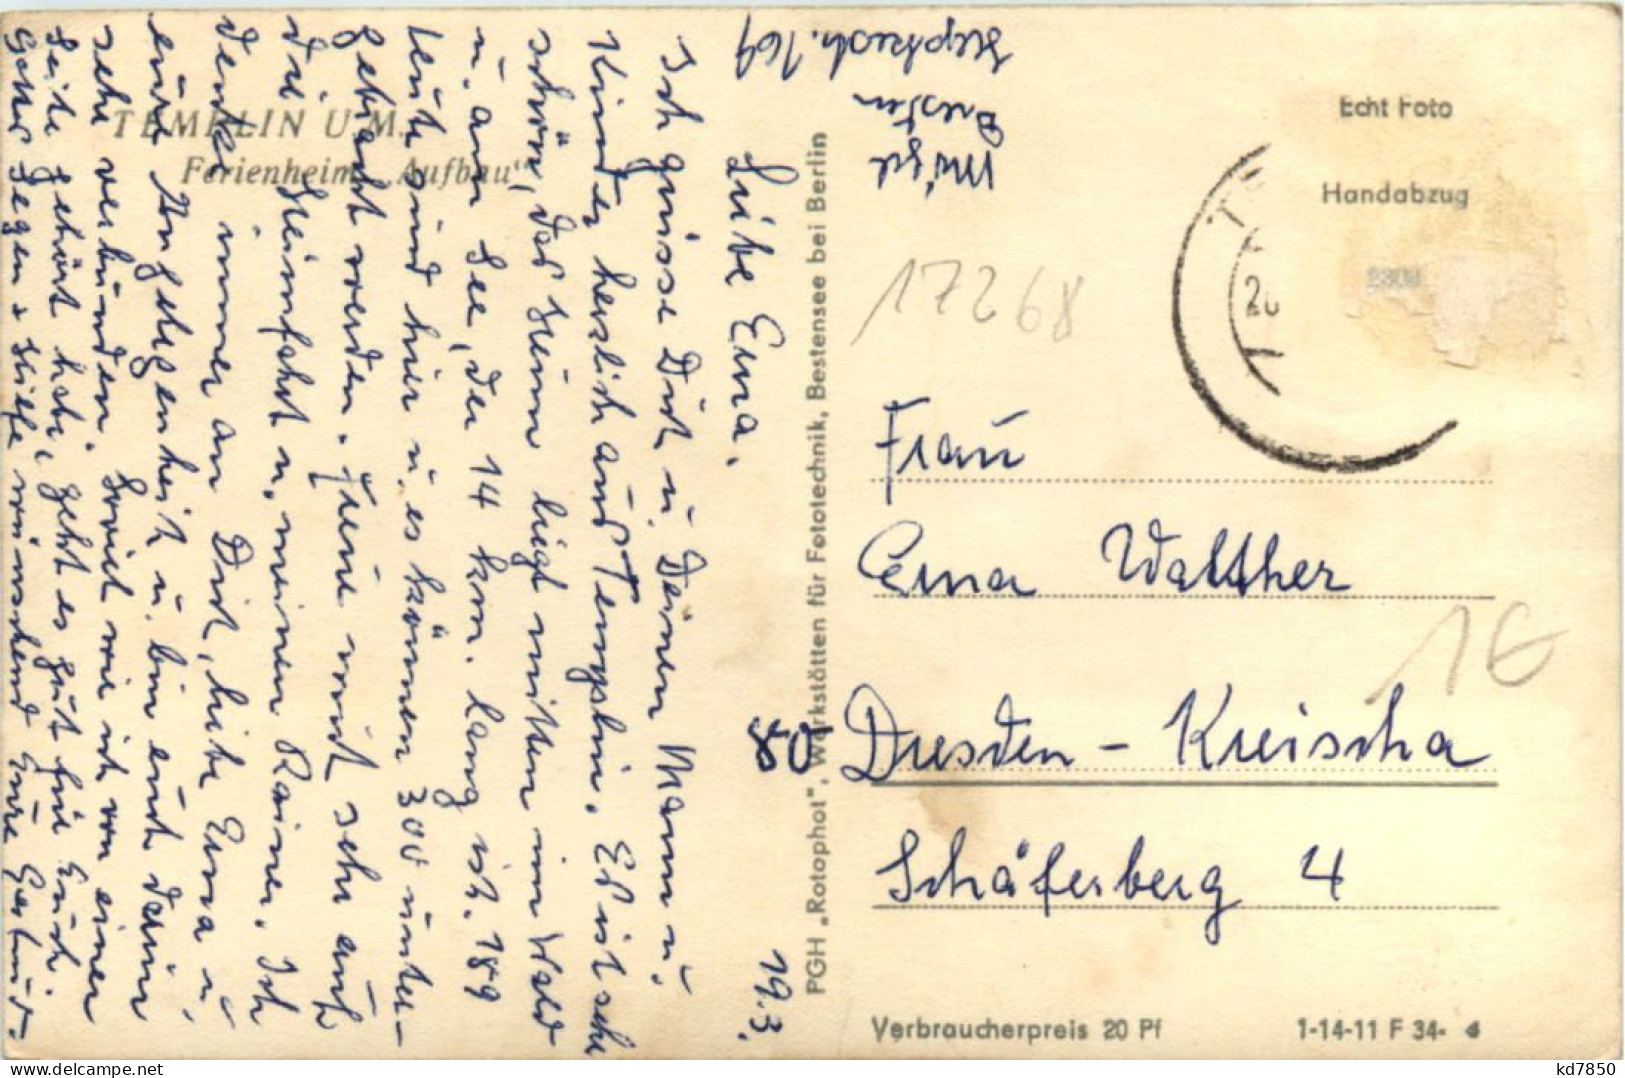 TEMPLIN U.M.
Ferienheim „Aufbau"
19.3.
Liebe Erna.
Ich grüsse Dich u. Deinen Mann u.
Kinder herzlich aus Templin. Es ist sehr
schön, das Heim liegt mitten im Wald
u. am See, der 14 km. lang ist. 189
Leute sind hier u. es können 300 unter-
gebracht werden. Freue mich sehr auf
die Heimfahrt u. meinen Rainer. Ich
denke immer an Dich, liebe Erna u.
eure Angelegenheit u. bin euch darin
sehr verbunden. Soviel wie ich von einer
Seite gehört habe, geht es gut für Euch.
Gottes Segen & Hilfe wünschend Eure Gertrud.
Müßel
Dresden
164
PGH „Rotophot", Werkstätten für Fototechnik, Bestensee bei Berlin
Echt Foto
Handabzug
T
20
17268
Frau
Erna Walther
80 Dresden - Kreischa
Schäferberg 4
1€
Verbraucherpreis 20 Pf
1-14-11 F 34-
kd7850